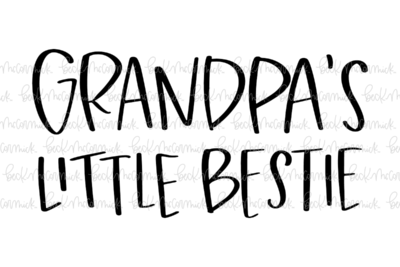 GRANDPA'S
LITTLE BESTIE